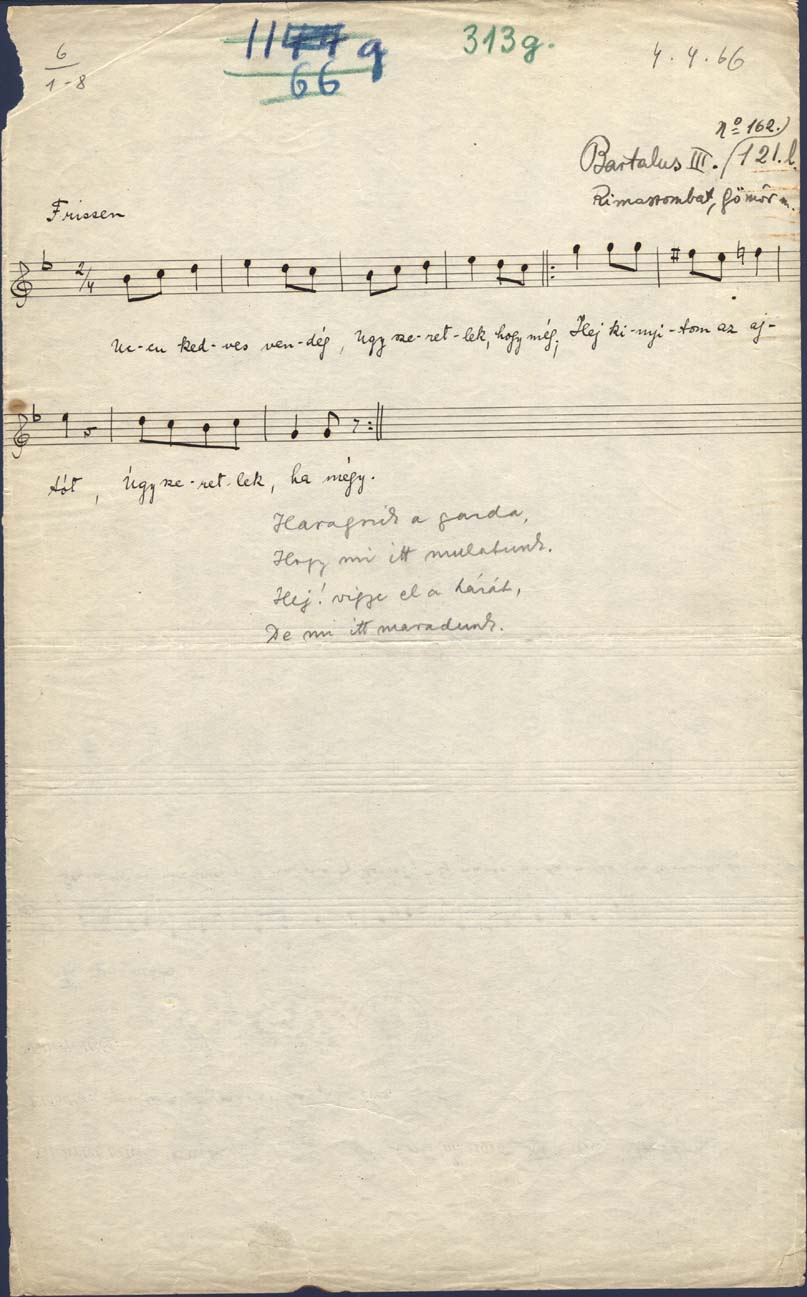 6
1-8
66 g
313g.
4.4.66
No 162.)
Bartalus III. (121. l.
Rimaszombat, Gömör m.
Frissen
2/4
ked-ves ven-dég, Úgy sze-ret-lek, hogy még, Hej ki-nyi-tom az aj-
tót, Úgy sze-ret-lek, ha mégy.
Haragszik a gazda,
Hogy mi itt mulatunk.
Hej! vigye el a házát,
De mi itt maradunk.